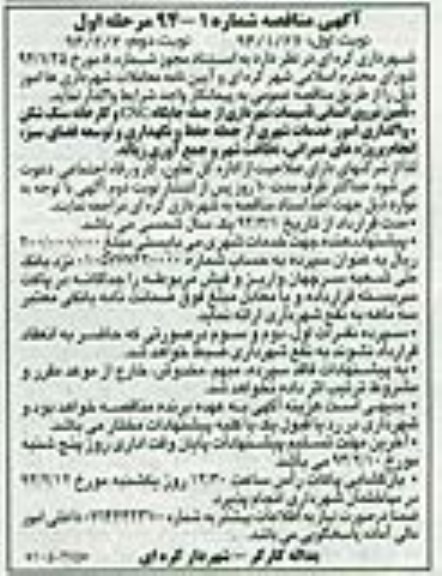 آگهی مناقصه شماره ۱-۹۴ مرحله اول
نوبت اول: ۹۴/۱/۲۶ نوبت دوم: ۹۴/۲/۲
شهرداری کره ای در نظر دارد به استناد مجوز شماره ۵ مورخ ۹۴/۱/۲۵
شورای محترم اسلامی شهر کره ای و آیین نامه معاملات شهرداری ها امور
ذیل را از طریق مناقصه عمومی به پیمانکار واجد شرایط واگذار نماید.
•تأمین نیروی انسانی تأسیسات شهرداری از جمله جایگاه CNG و کارخانه سنگ شکن
•واگذاری امور خدمات شهری از جمله حفظ و نگهداری و توسعه فضای سبز،
انجام پروژه های عمرانی، نظافت شهر و جمع آوری زباله.
لذا از شرکتهای دارای صلاحیت از اداره کل تعاون، کار و رفاه اجتماعی دعوت
می شود حداکثر ظرف مدت ۱۰ روز پس از انتشار نوبت دوم آگهی با توجه به
موارد ذیل جهت اخذ اسناد مناقصه به شهرداری کره ای مراجعه نمایند.
•مدت قرارداد از تاریخ ۹۴/۳/۱ یک سال شمسی می باشد.
•پیشنهاددهنده جهت خدمات شهری می بایستی مبلغ
ریال به عنوان سپرده به حساب شماره نزد بانک
ملی شعبه واریز و فیش مربوطه را جداگانه در پاکت
سربسته قرار داده و یا معادل مبلغ فوق ضمانت نامه بانکی معتبر
سه ماهه به نفع شهرداری ارائه نماید.
•سپرده نفرات اول، دوم و سوم در صورتی که حاضر به انعقاد
قرارداد نشوند به نفع شهرداری ضبط خواهد شد.
•به پیشنهادات فاقد سپرده، مبهم، مخدوش، خارج از موعد مقرر و
مشروط ترتیب اثر داده نخواهد شد.
•بدیهی است هزینه آگهی به عهده برنده مناقصه خواهد بود و
شهرداری در رد یا قبول یک یا کلیه پیشنهادات مختار می باشد.
•آخرین مهلت تسلیم پیشنهادات پایان وقت اداری روز پنج شنبه
مورخ ۹۴/۲/۱۰ می باشد.
•بازگشایی پاکات رأس ساعت ۱۲:۳۰ روز یکشنبه مورخ
در ساختمان شهرداری انجام پذیرد.
ضمنا در صورت نیاز به اطلاعات بیشتر به شماره داخلی امور
مالی آماده پاسخگویی می باشد.
یداله کارگر - شهردار کره ای